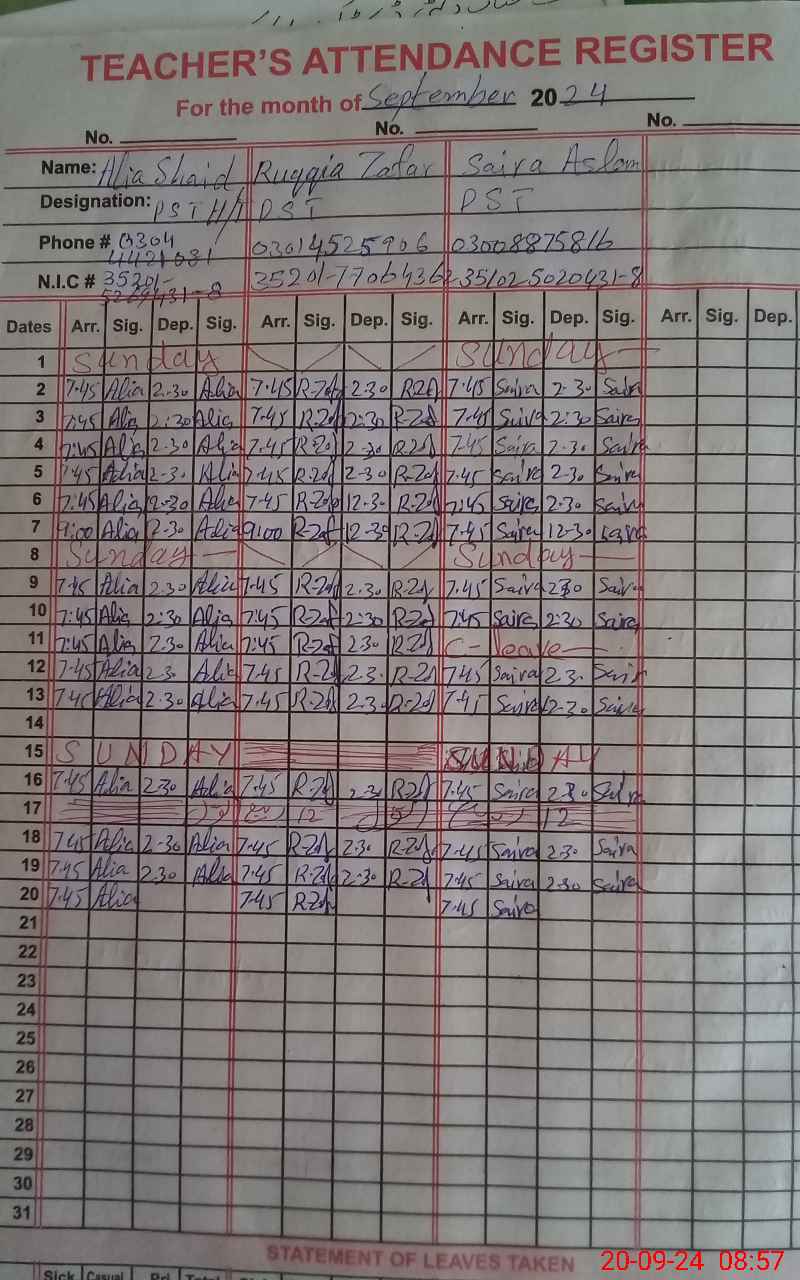 TEACHER'S ATTENDANCE REGISTER
For the month of September 2024
No. No. No.
Name: Alia Shaid Ruqqia Zafar Saira Aslam
Designation: PST H/T PST PST
Phone # 0304 4421081 03014525906 03008875816
N.I.C # 35201- 35201-7706436 351025020431-8
Dates Arr. Sig. Dep. Sig. Arr. Sig. Dep. Sig. Arr. Sig. Dep. Sig. Arr. Sig. Dep.
1 Sunday Sunday
2 7.45 Alia 2.30 Alia 7.45 R-Zaf 2.30 R-Zaf 7.45 Saira 2.30 Saira
3 7.45 Alia 2:30 Alia 7.45 R-Zaf 2:30 R-Zaf 7.45 Saira 2:30 Saira
4 7:45 Alia 2.30 Alia 7.45 R-Zaf 2-30 R-Zaf 7-45 Saira 2-30 Saira
5 7.45 Alia 2-30 Alia 7.45 R-Zaf 2-30 R-Zaf 7.45 Saira 2-30 Saira
6 7:45 Alia 12-30 Alia 7-45 R-Zaf 12-30 R-Zaf 7:45 Saira 2-30 Saira
7 9:00 Alia 12-30 Alia 9:00 R-Zaf 12-30 R-Zaf 7-45 Saira 12-30 Saira
8 Sunday Sunday
9 7.45 Alia 2.30 Alia 7.45 R-Zaf 2.30 R-Zaf 7.45 Saira 2.30 Saira
10 7:45 Alia 2:30 Alia 7:45 R-Zaf 2:30 R-Zaf 7:45 Saira 2:30 Saira
11 7:45 Alia 2.30 Alia 7:45 R-Zaf 2.30 R-Zaf C-leave
12 7.45 Alia 2.30 Alia 7.45 R-Zaf 2.30 R-Zaf 7.45 Saira 2.30 Saira
13 7.45 Alia 2.30 Alia 7.45 R-Zaf 2.30 R-Zaf 7.45 Saira 12-30 Saira
14
15 SUNDAY SUNDAY
16 7.45 Alia 2-30 Alia 7.45 R-Zaf 2.30 R-Zaf 7.45 Saira 2.30 Saira
17 12 12
18 7.45 Alia 2-30 Alia 7-45 R-Zaf 2.30 R-Zaf 7.45 Saira 2.30 Saira
19 7.45 Alia 2.30 Alia 7.45 R-Zaf 2-30 R-Zaf 7.45 Saira 2.30 Saira
20 7.45 Alia 7.45 R-Zaf 7.45 Saira
21
22
23
24
25
26
27
28
29
30
31
STATEMENT OF LEAVES TAKEN
20-09-24 08:57
Sick Casual